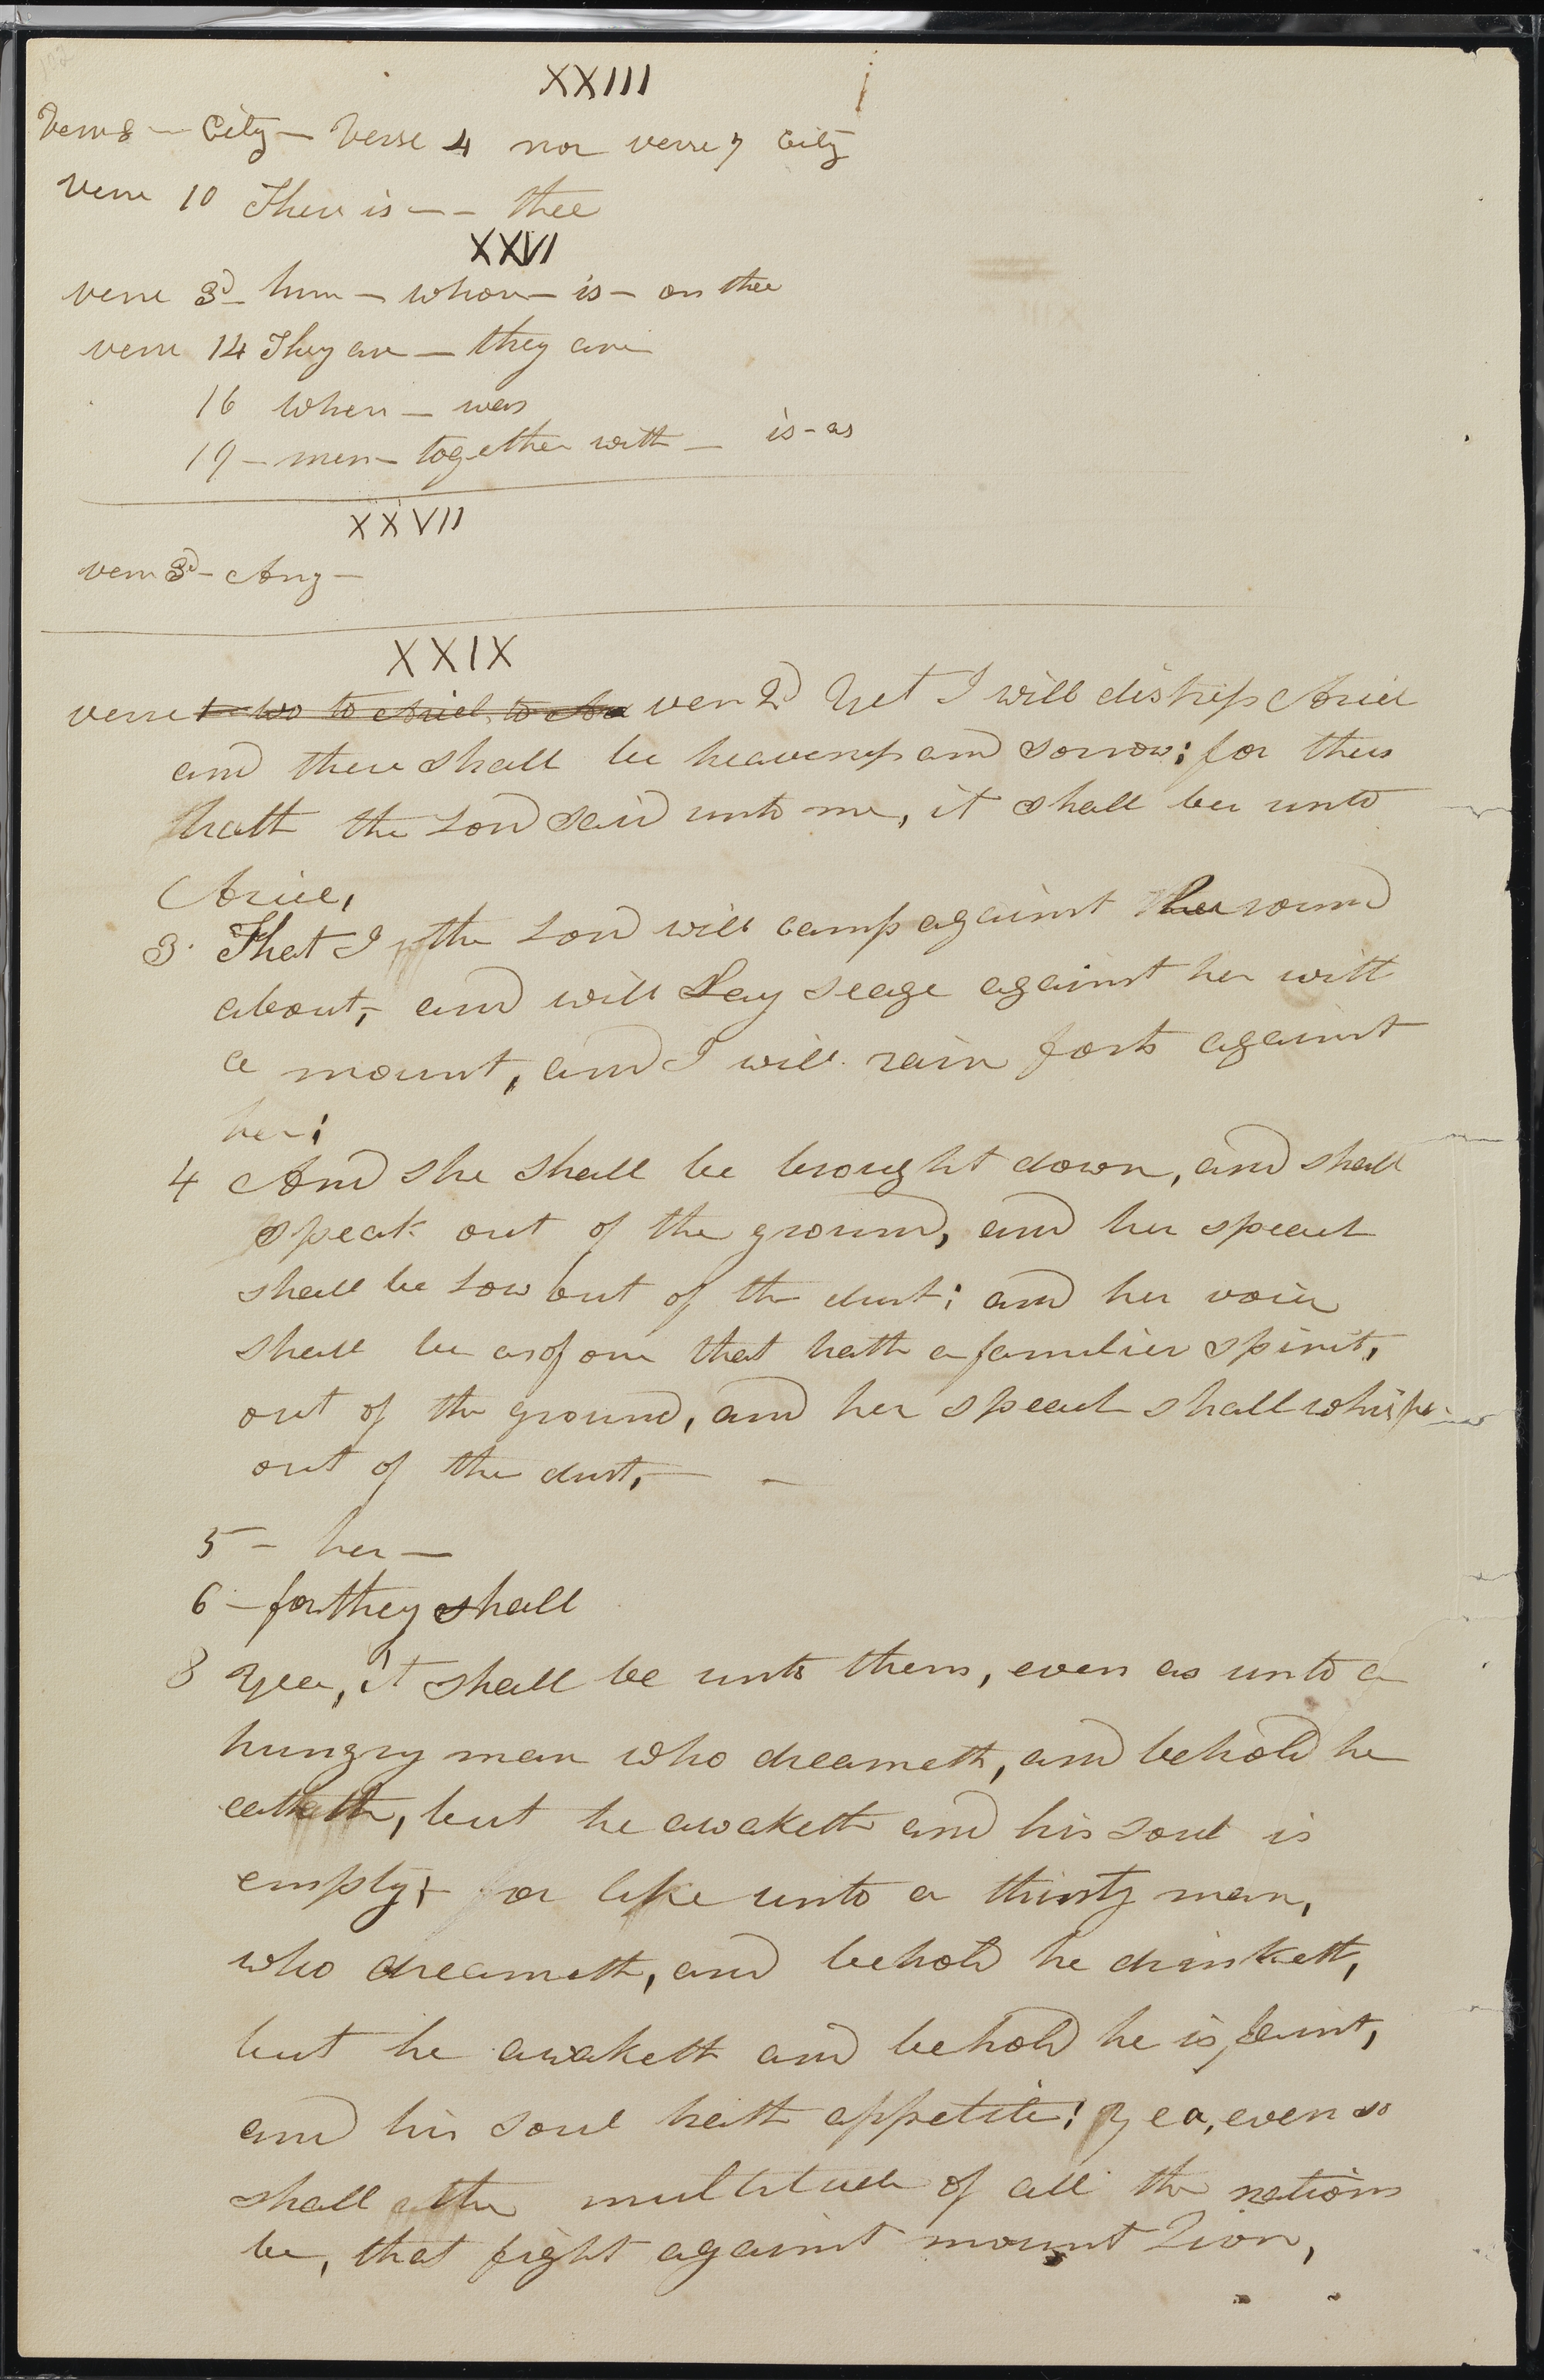 XXIII
Verse 8 — City — Verse 4 nor verse 7 City
Verse 10 There is — – thee
XXVI
verse 3d – him – whom – is – on thee
verse 14 They are — they are
16 when — was
19 – men – together with — is – as
XXVII
verse 3d – Any –
XXIX
verse 1 wo to Ariel, to Ar ver 2d Yet I will distress Ariel
and there shall be heaveness and sorrow; for thus
hath the Lord said unto me, it shall be unto
Ariel,
3 That I the Lord will camp against her round
about, and will Lay seage against her with
a mount, and I will rais forts against
her;
4 And she shall be brought down, and shall
speak out of the ground, and her speech
shall be Low out of the dust; and her voice
shall be as of one that hath a familier spirit,
out of the ground, and her speech shall whisper
out of the dust, — –
5 – her —
6 – for they shall
8 Yea, it shall be unto them, even as unto a
hungry man who dreameth, and behold he
eateth, but he awaketh and his soul is
empty; or like unto a thirsty man,
who dreameth, and behold he drinketh,
but he awaketh and behold he is faint,
and his soul hath appetite; yea, even so
shall the multitude of all the nations
be, that fight against mount Zion,